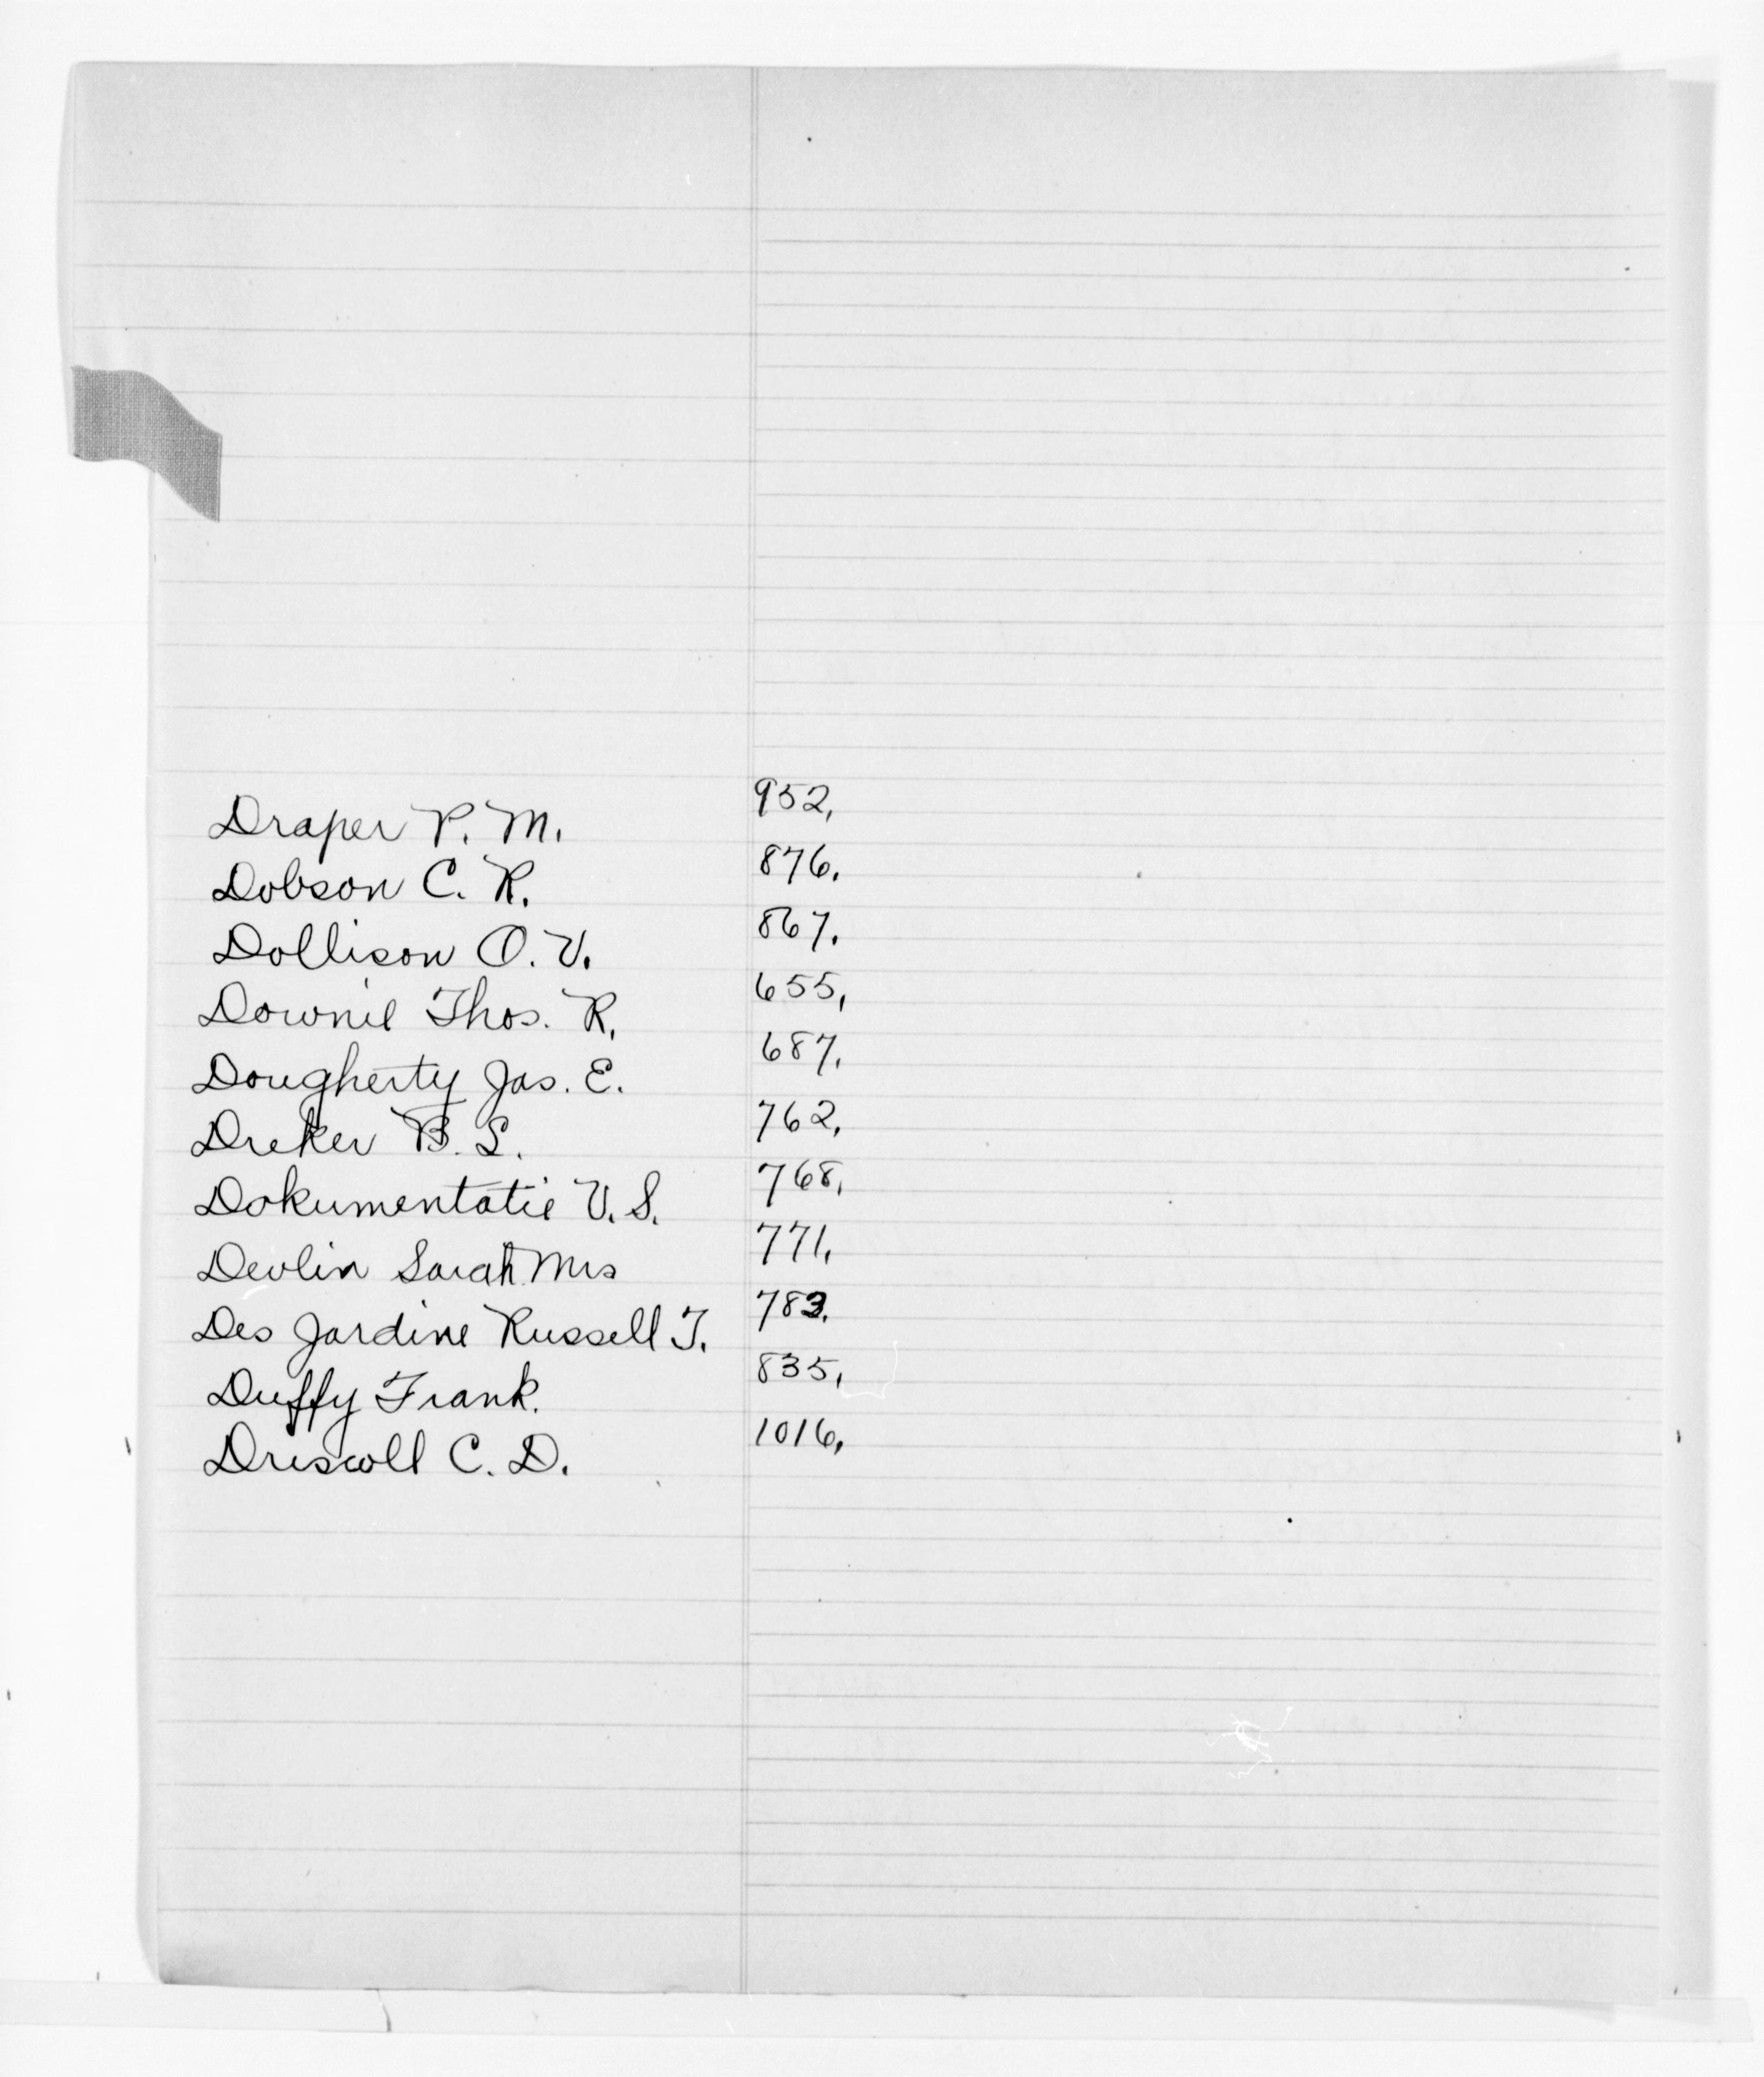 Draper P. M. 952,
Dobson C. R. 876.
Dollison O. V. 867.
Downie Thos. R. 655,
Dougherty Jas. E. 687.
Dreker B. S. 762,
Dokumentatie V. S. 768,
Devlin Sarah Mrs 771,
Des Jardine Russell T. 783.
Duffy Frank. 835,
Driscoll C. D. 1016,